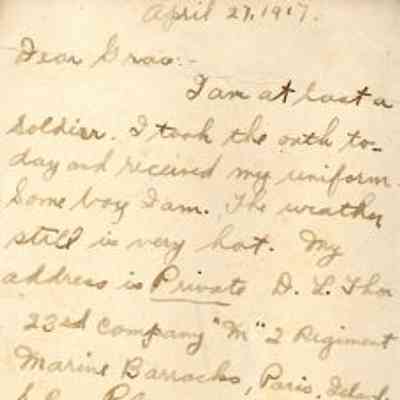 April 27, 1917.
Dear Grac:-
I am at last a
soldier. I took the oath to-
day and received my uniform.
Some boy I am. The weather
still is very hot. My
address is Private D. L. Thor
23rd Company "M" 2 Regiment
Marine Barracks, Paris, Island,